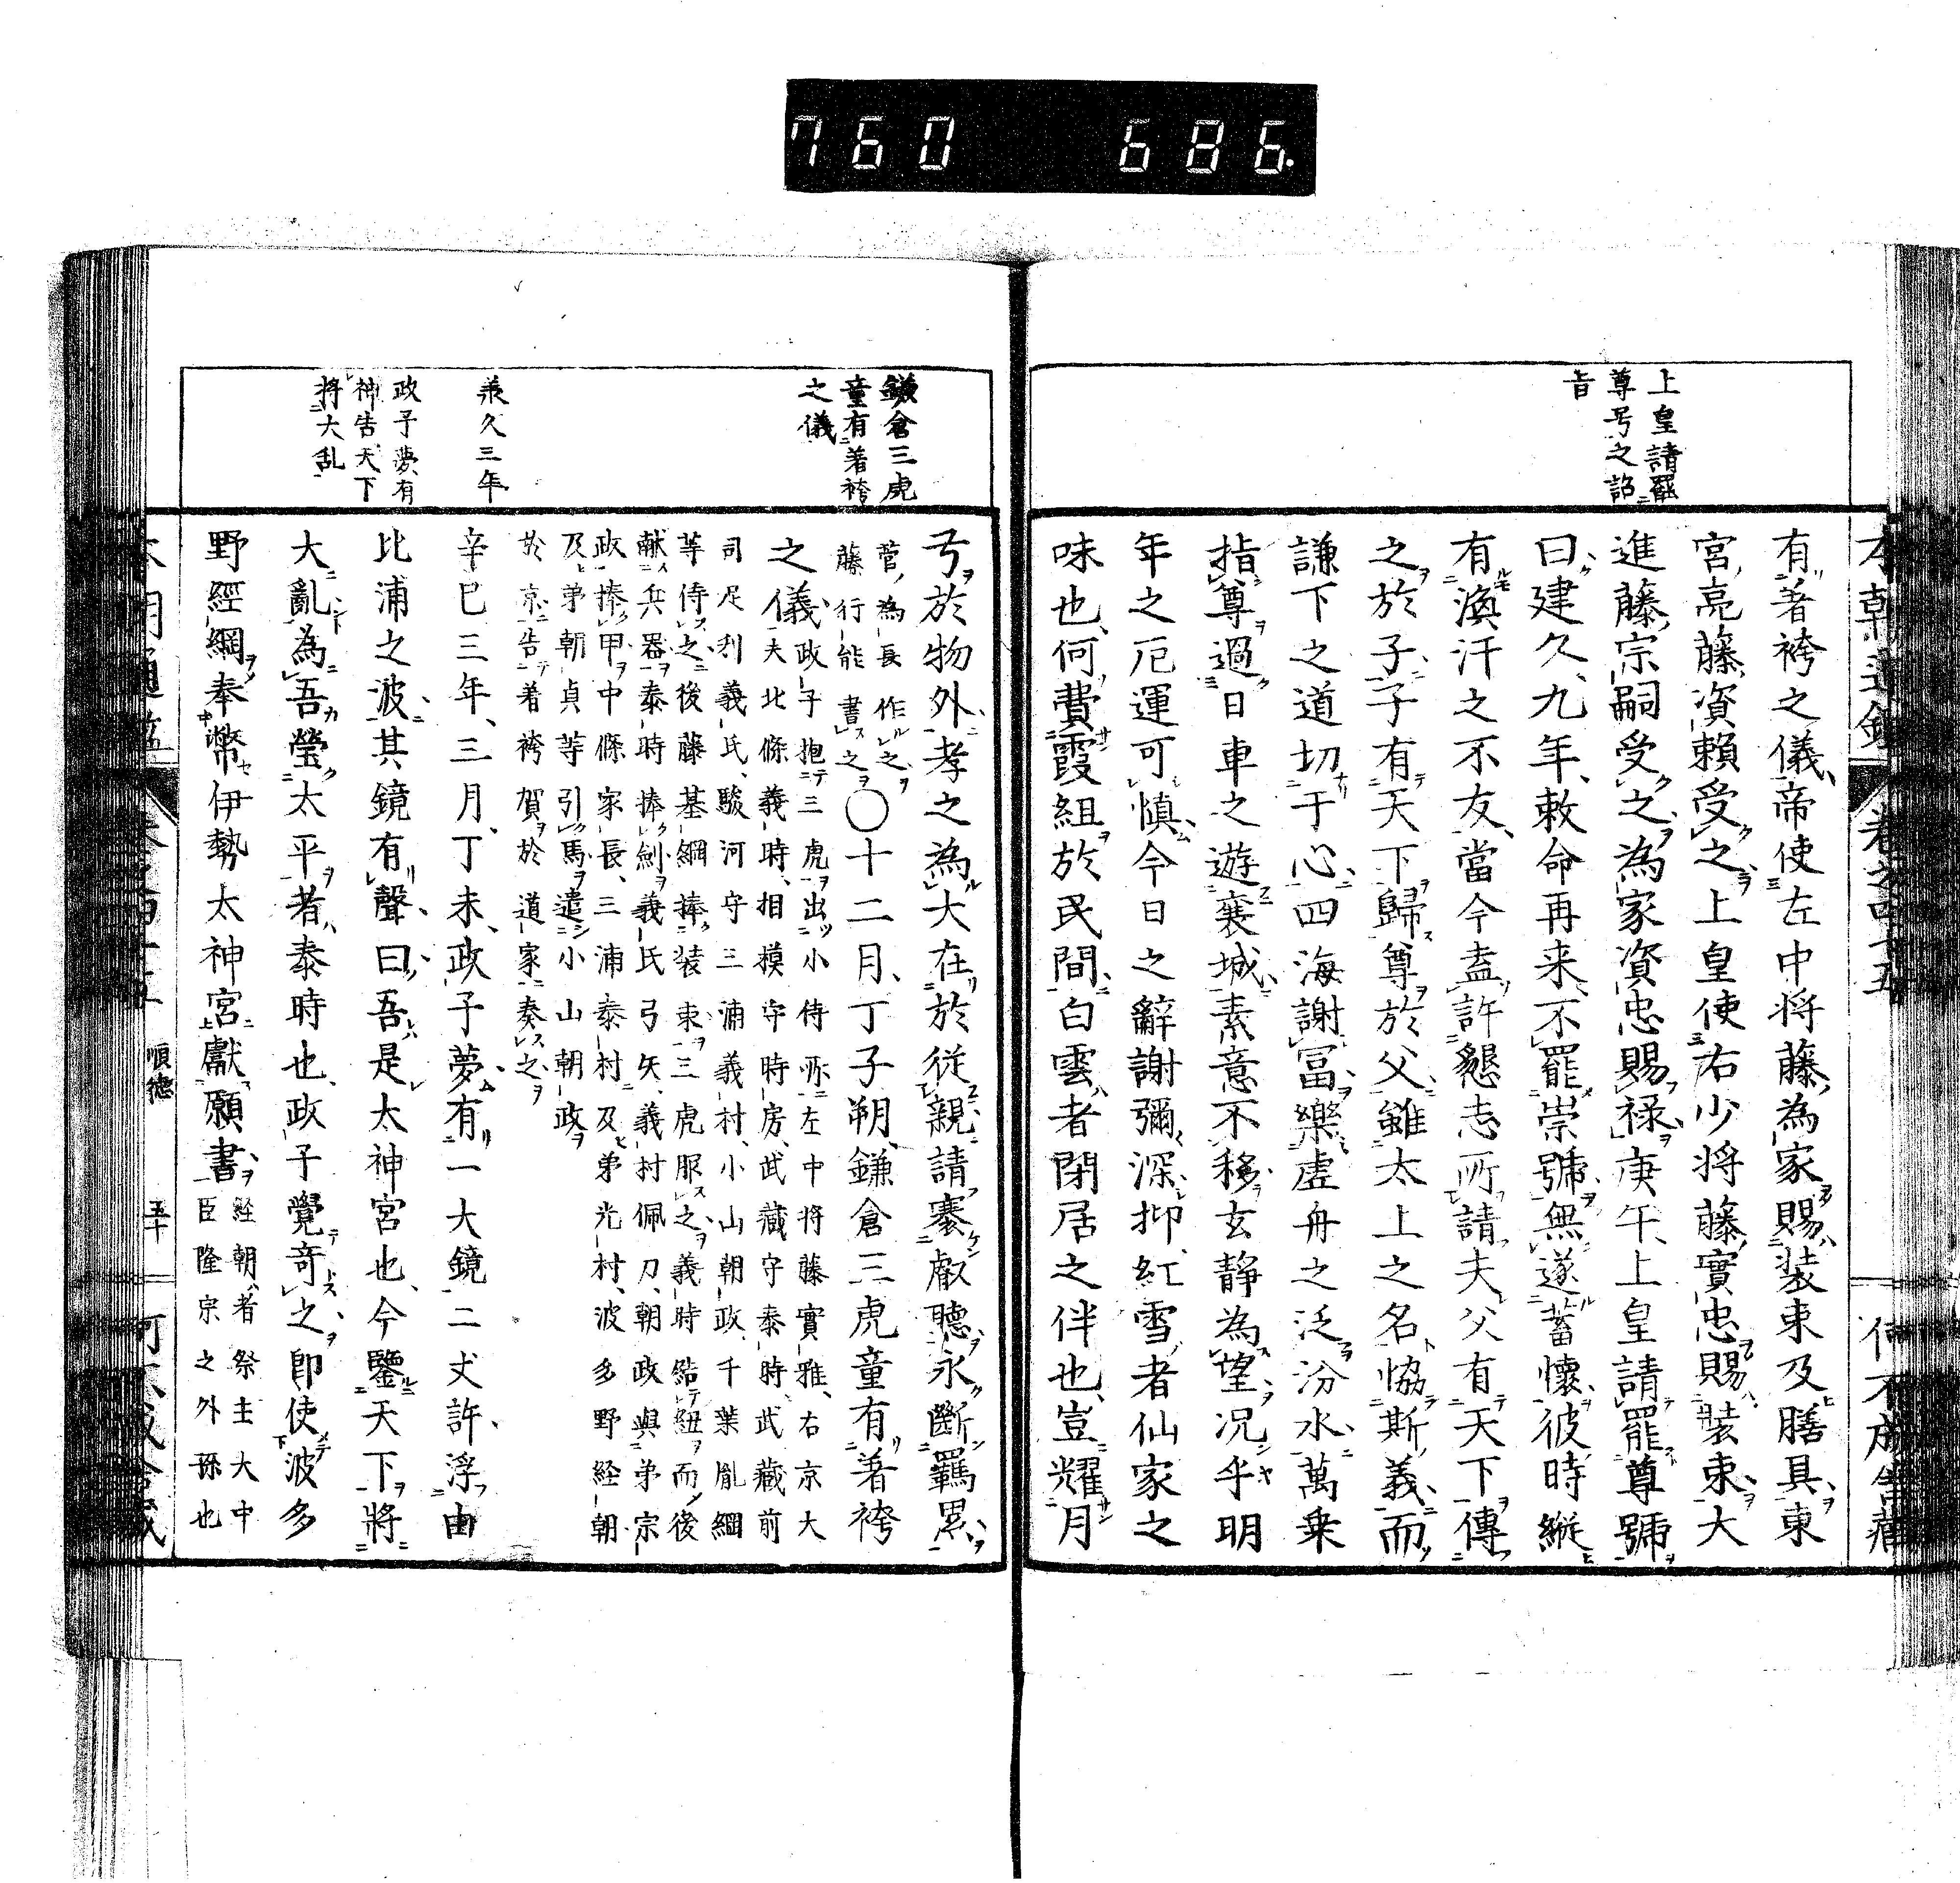 760 686.
本朝通鑑 卷之四十五
上皇請罷
尊号之詔
旨
有著袴之儀帝使左中将藤為家賜装束及膳具東
宮亮藤資頼受之上皇使右少将藤實忠賜装束大
進藤宗嗣受之為家資忠賜禄庚午上皇請罷尊號
曰建久九年敕命再来不罷崇號無遂蓄懷彼時縦
有渙汗之不友當今盍許懇志所請夫父有天下傳
之於子子有天下歸尊於父雖太上之名恊斯義而
謙下之道切于心四海謝冨樂虚舟之泛汾水萬乗
指尊過日車之遊襄城素意不移玄静為望况乎明
年之厄運可慎今日之辭謝彌深抑紅雪者仙家之
味也何費霞組於民間白雲者閑居之伴也豈耀月
鎌倉三虎
童有著袴
之儀
承久三年
政子夢有
神告天下
将大乱
弓於物外孝之為大在於従親請褰叡聽永斷羈累
菅為長作之
藤行能書之
〇十二月丁子朔鎌倉三虎童有著袴
之儀
政子抱三虎出小侍所左中将藤實雅右京大
夫北條義時相模守時房武藏守泰時武藏前
司足利義氏駿河守三浦義村小山朝政千葉胤綱
等侍之後藤基綱捧装束三虎服之義時結紐而後
献兵器泰時捧劔義氏弓矢義村佩刀朝政與弟宗
政捧甲中條家長三浦泰村及弟光村波多野経朝
及弟朝貞等引馬遣小山朝政
於京告着袴賀於道家奏之
辛巳三年三月丁未政子夢有一大鏡二丈許浮由
比浦之波其鏡有聲曰吾是太神宮也今鑒天下將
大亂為吾瑩太平者泰時也政子覺奇之即使波多
野經綱奉幣伊勢太神宮獻願書
経朝者祭主大中
臣隆宗之外孫也
順徳 五十